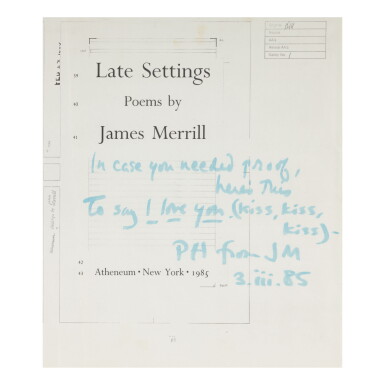 39 Late Settings
40 Poems by
41 James Merrill
In case you needed proof,
here's this
To say I love you. (kiss, kiss,
kiss)—
PH from JM
3.iii.85
42
43 Atheneum · New York · 1985